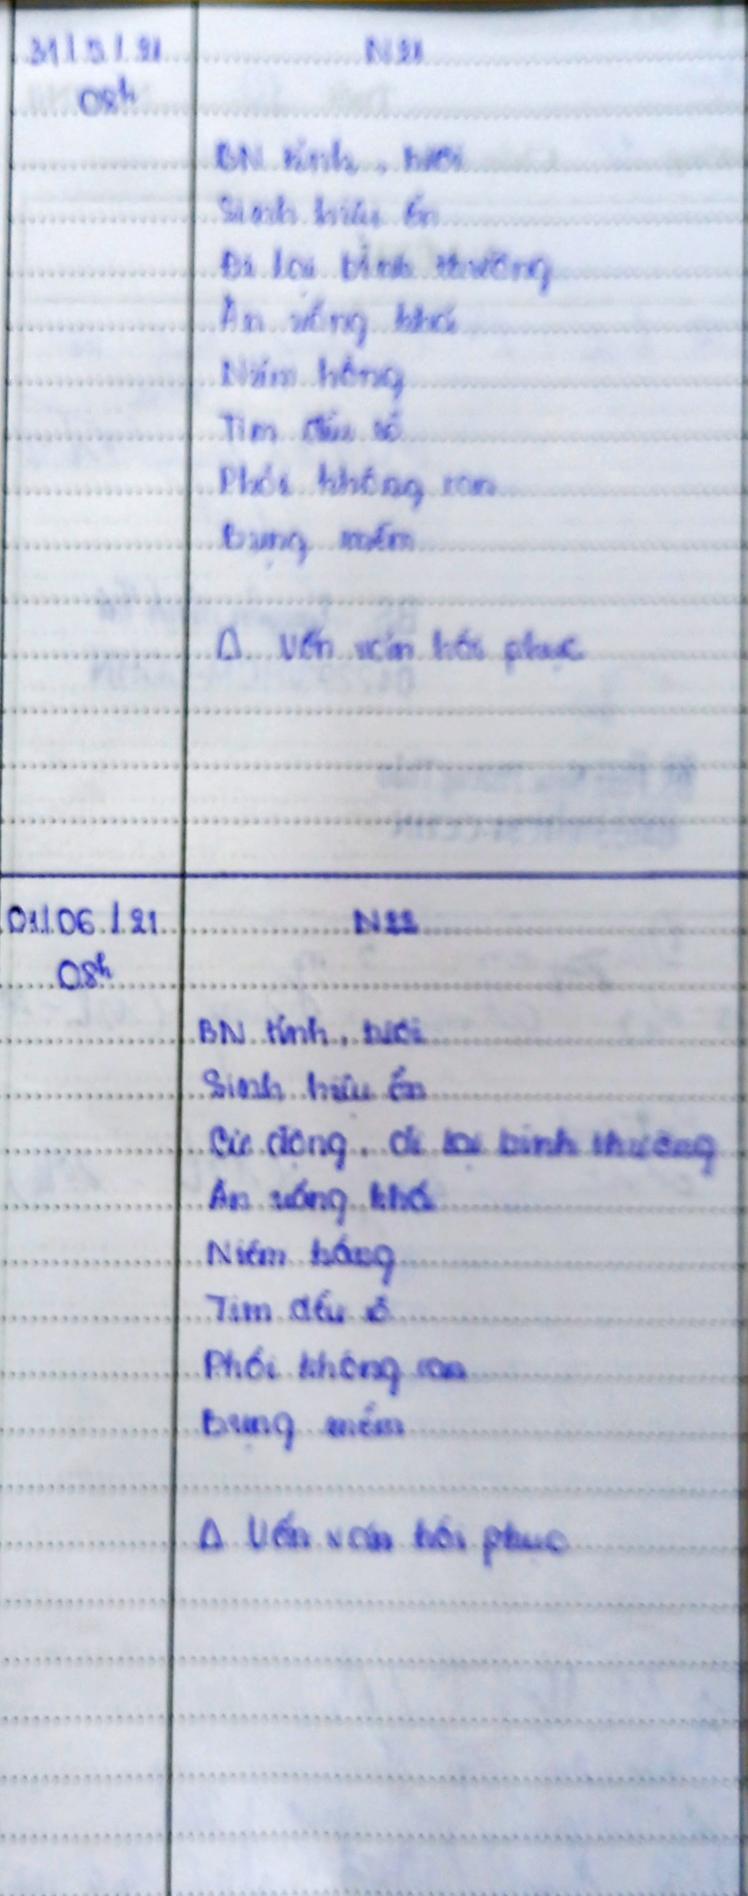 31/5/21
N21
08h
BN tỉnh, tươi
Sinh hiệu ổn
Đi lại bình thường
Ăn uống khá
Niêm hồng
Tim đều rõ
Phổi không ran
Bụng mềm
Δ Uốn ván hồi phục
01/06/21
N22
08h
BN tỉnh, tươi
Sinh hiệu ổn
Cử động, đi lại bình thường
Ăn uống khá
Niêm hồng
Tim đều rõ
Phổi không ran
Bụng mềm
Δ Uốn ván hồi phục